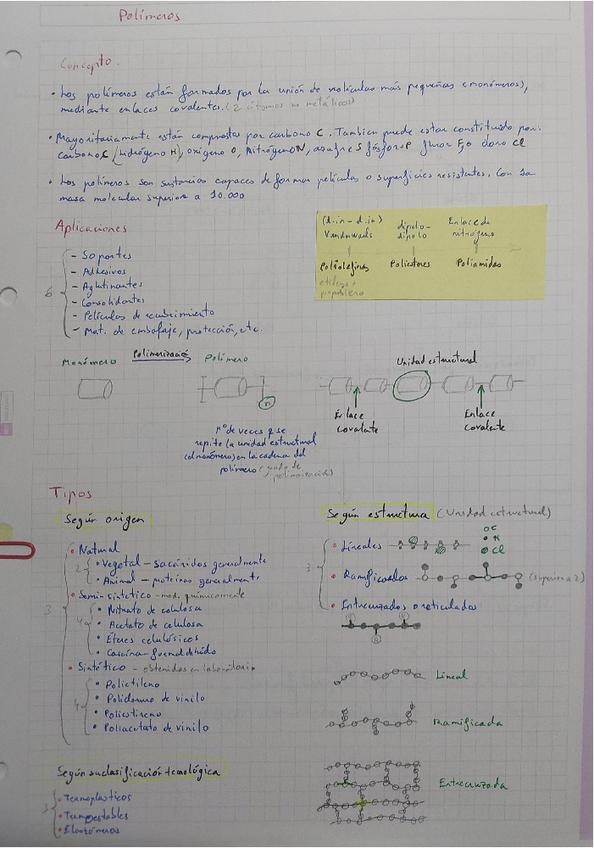 Polímeros
Concepto.
• Los polímeros están formados por la unión de moléculas más pequeñas (monómeros),
mediante enlaces covalentes. (2 átomos no metálicos)
• Mayoritariamente están compuestos por carbono C. Tambien puede estar constituido por:
carbono C, hidrógeno H, oxígeno O, Nitrógeno N, azufre S fósforo P fluor F, o cloro Cl
• Los polímeros son sustancias capaces de formar películas o superficies resistentes. Con una
masa molecular superior a 10.000
Aplicaciones
6
- Soportes
- Adhesivos
- Aglutinantes
- Consolidantes
- Películas de recubrimiento
- Mat. de embalaje, protección, etc.
(d.in - d.in)
Vanderwaals
Poliolefinas
etileno +
propileno
dipolo-
dipolo
Poliesteres
Enlace de
nitrógeno
Poliamidas
Monómero
Polimerizació
Polímero
n
nº de veces q se
repite la unidad estructural
(el monómero) en la cadena del
polímero (grado de
polimerización)
Unidad estructural
Enlace
Covalente
Enlace
Covalente
Tipos
Según origen
3
• Natural
2
• Vegetal - sacáridos generalmente
• Animal - proteínas generalmente
• Semisintético - mod. químicamente
4
• Nitrato de celulosa
• Acetato de celulosa
• Éteres celulósicos
• Caseína-formaldehído
• Sintético - obtenidos en laboratorio
4
• Polietileno
• Policloruro de vinilo
• Poliestireno
• Poliacetato de vinilo
Según su clasificación tecnológica
3
• Termoplásticos
• Termoestables
• Elastómeros
Según estructura (Unidad estructural)
3
• Lineales
C
H
Cl
• Ramificados
(superior a 2)
• Entrecruzados o reticulados
Lineal
Ramificada
Entrecruzada